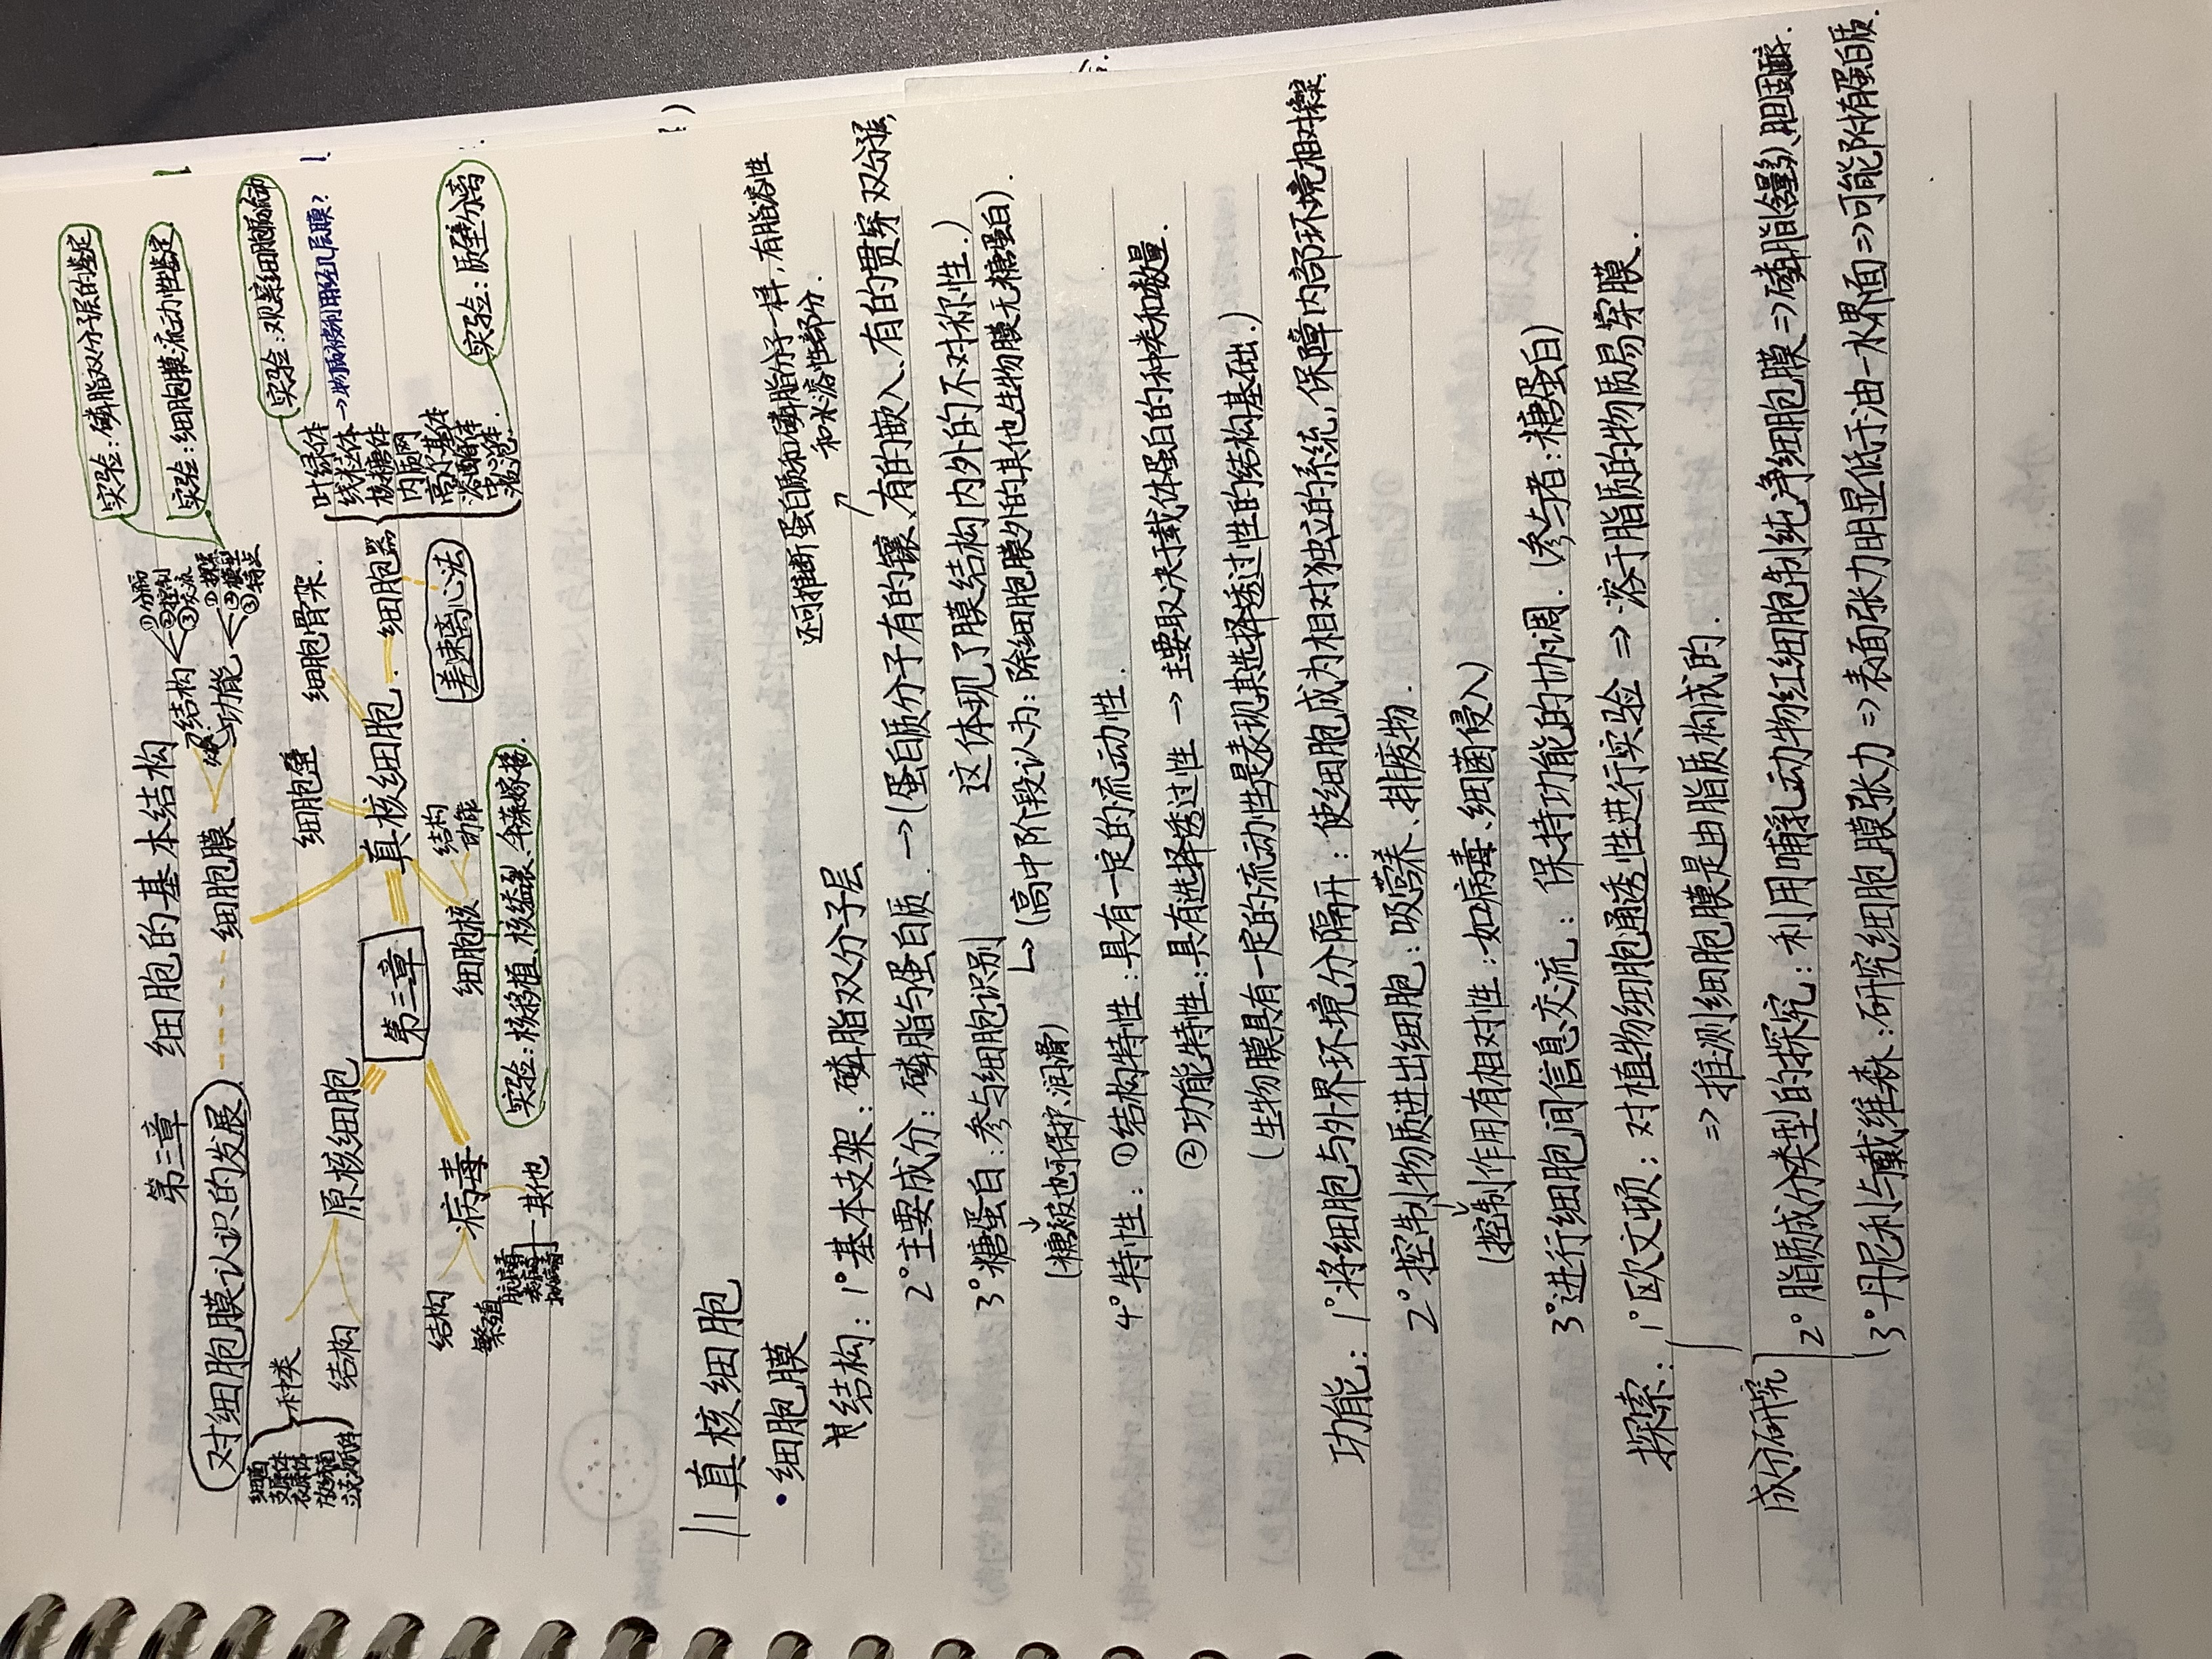 第三章 细胞的基本结构
实验：磷脂双分子层的鉴定
实验：细胞膜流动性鉴定
对细胞膜认识的发展
细胞膜
结构
①分隔
②控制
③交流
功能
①探索
②模型
③特点
细菌
支原体
衣原体
放线菌
立克次氏体
种类
结构
原核细胞
细胞壁
细胞骨架.
叶绿体
线粒体
核糖体
内质网
高尔基体
溶酶体
中心体
液泡.
实验：观察细胞质流动
→物质被利用经几层膜？
实验：质壁分离
第三章
真核细胞.
细胞器
差速离心法
结构
繁殖
病毒
其他
细胞核
结构
功能
实验：核移植、核缢裂、伞藻嫁接.
真核细胞
·细胞膜
还可推断蛋白质和磷脂分子一样，有脂溶性
和水溶性部分.
结构：1°基本支架：磷脂双分子层
2°主要成分：磷脂与蛋白质.→(蛋白质分子有的镶、有的嵌入、有的贯穿双分子层,
这体现了膜结构内外的不对称性.)
3°糖蛋白：参与细胞识别
↳(高中阶段认为：除细胞膜外的其他生物膜无糖蛋白).
(糖被也可保护、润滑)
4°特性：①结构特性：具有一定的流动性.
②功能特性：具有选择透过性→主要取决于载体蛋白的种类和数量.
(生物膜具有一定的流动性是表现其选择透过性的结构基础.)
功能：1°将细胞与外界环境分隔开：使细胞成为相对独立的系统,保障内部环境相对稳定.
2°控制物质进出细胞：吸营养、排废物.
(控制作用有相对性：如病毒、细菌侵入)
3°进行细胞间信息交流：保持功能的协调.(参与者：糖蛋白)
探索：1°欧文顿：对植物细胞通透性进行实验⇒溶于脂质的物质易穿膜.
⇒推测细胞膜是由脂质构成的.
成分研究
2°脂质成分类型的探究：利用哺乳动物红细胞制纯净细胞膜⇒磷脂(含量多)、胆固醇.
3°丹尼利与戴维森：研究细胞膜张力⇒表面张力明显低于油—水界面⇒可能附有蛋白质.